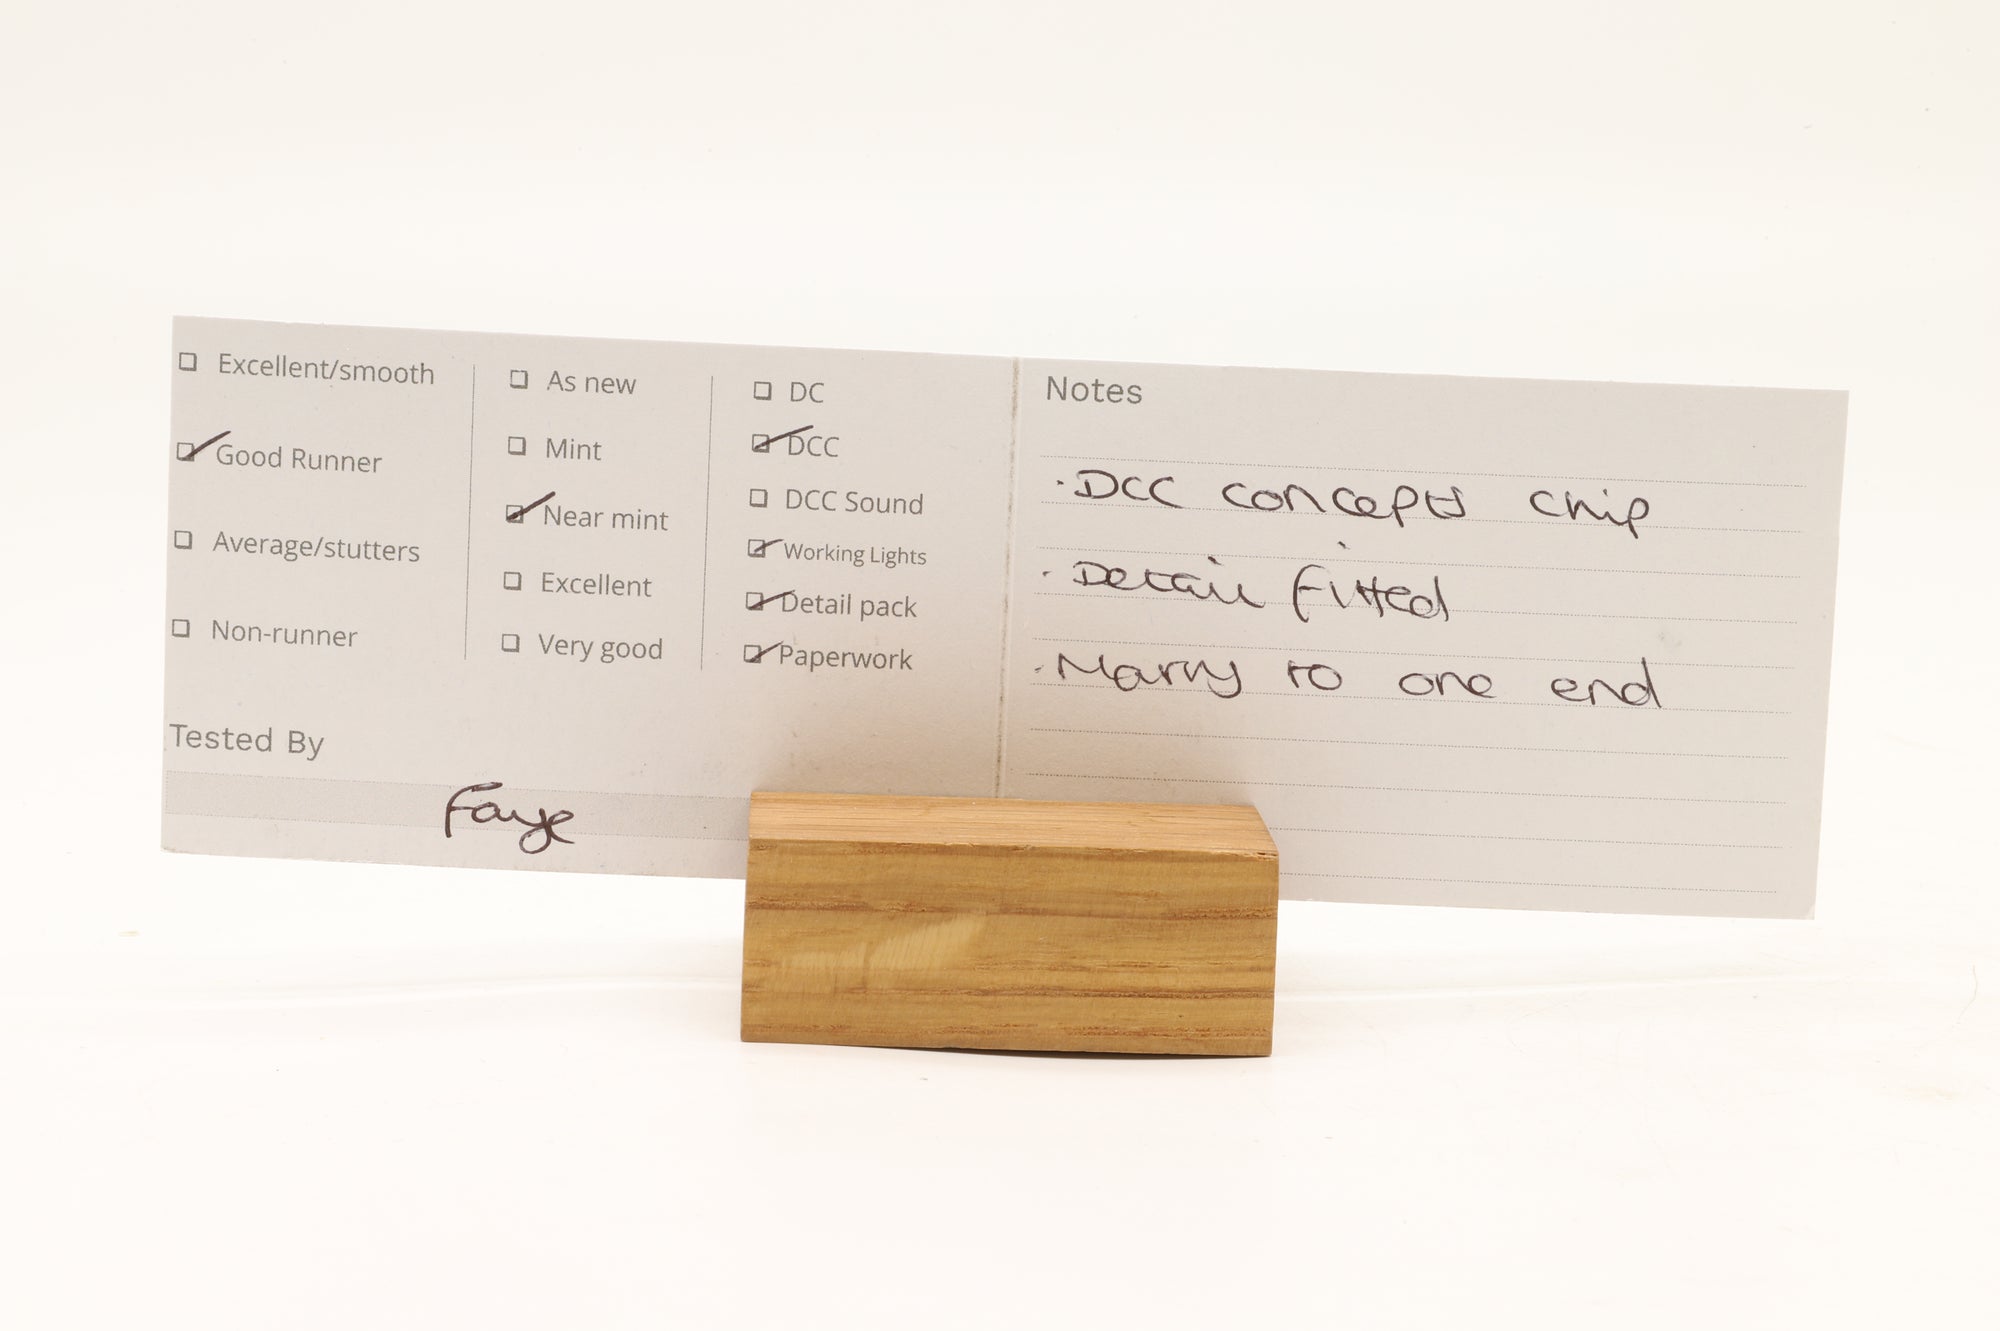 Excellent/smooth
Good Runner
Average/stutters
Non-runner
As new
Mint
Near mint
Excellent
Very good
DC
DCC
DCC Sound
Working Lights
Detail pack
Paperwork
Tested By
Faye
Notes
· DCC concepts chip
· Detail fitted
· to one end